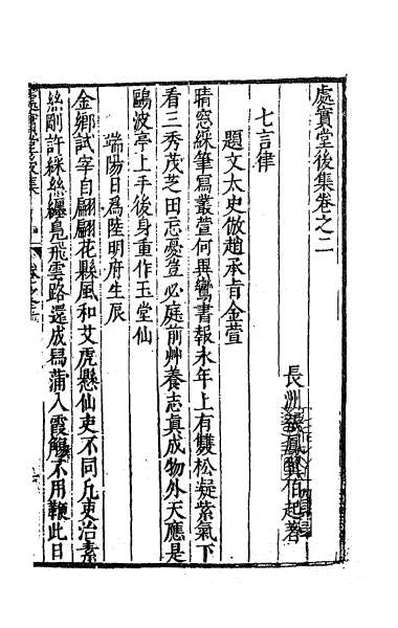 處實堂後集卷之二
長洲張鳳翼伯起著
七言律
題文太史倣趙承旨金萱
晴窓綵筆寫叢萱何異鸞書報永年上有雙松凝紫氣下
看三秀茂芝田忘憂豈必庭前艸養志真成物外天應是
鷗波亭上手後身重作玉堂仙
端陽日爲陸明府生辰
金鄉試宰自翩翩花縣風和艾虎懸仙吏不同凡吏治素
絲剛許綵絲纏鳧飛雲路還成舄蒲入霞觴不用鞭此日